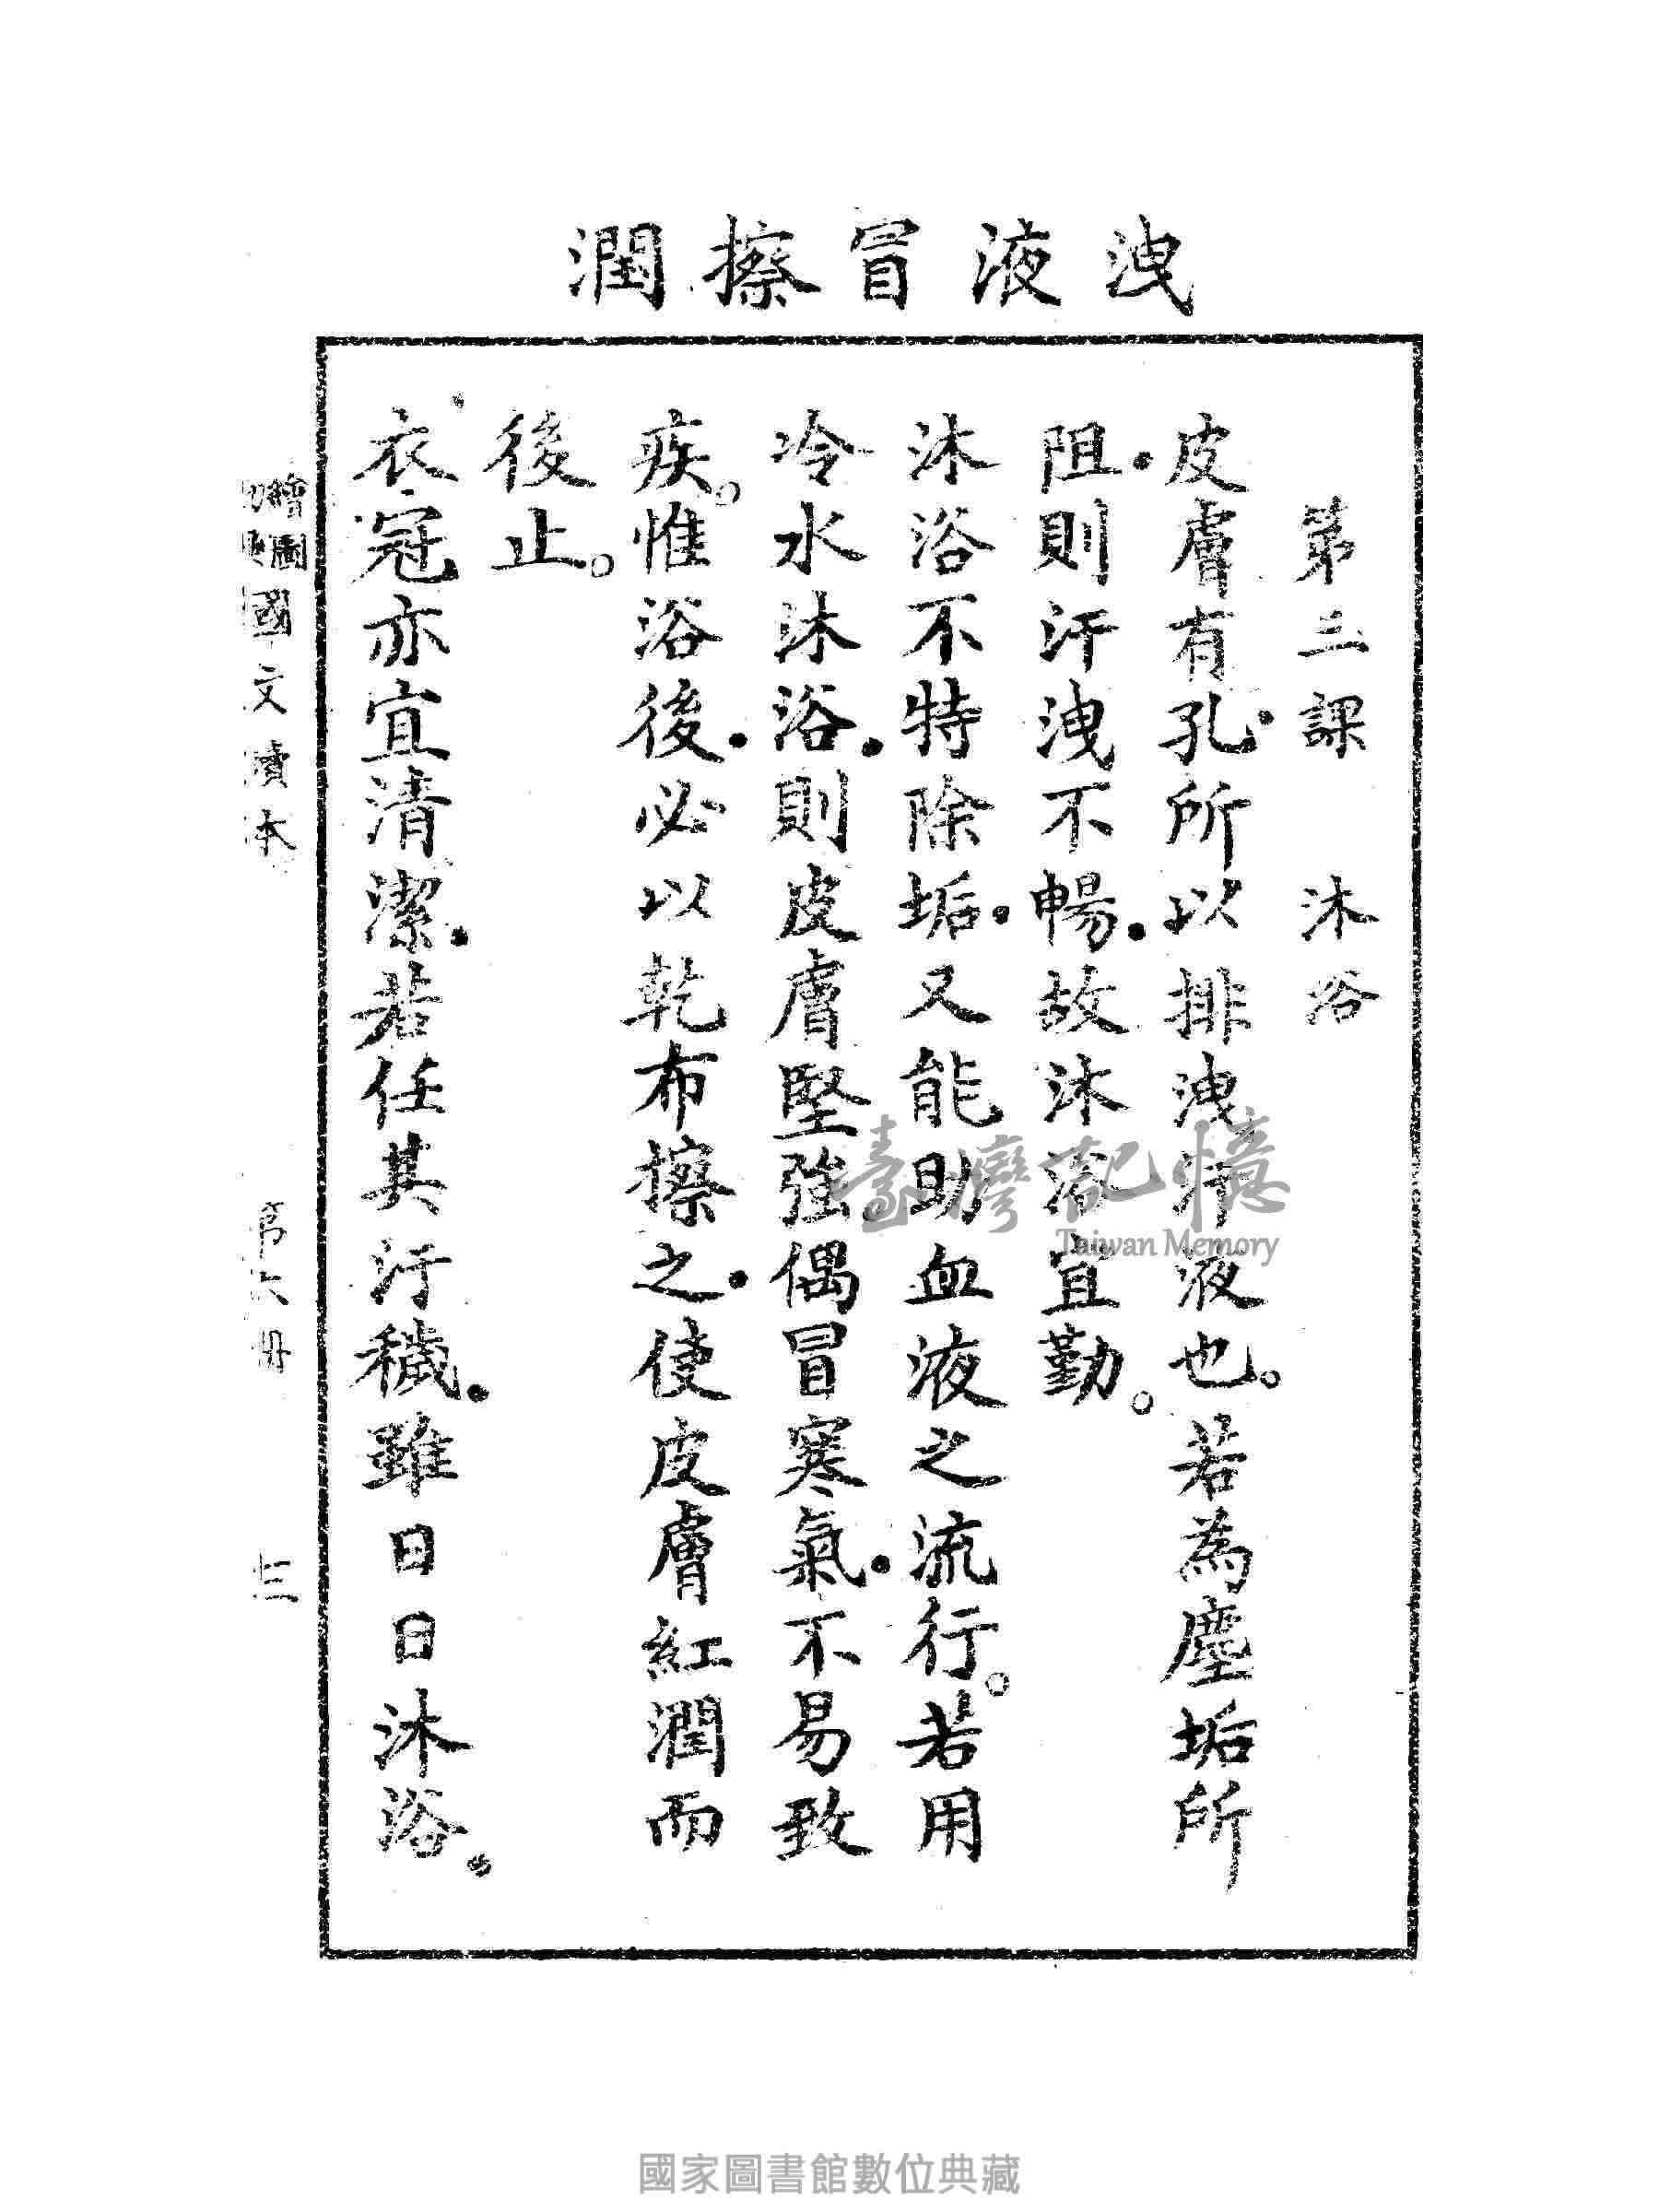 洩液冒擦潤
第三課　沐浴
皮膚有孔．所以排洩汗液也。若為塵垢所
阻．則汗洩不暢．故沐浴宜勤。
沐浴不特除垢．又能助血液之流行。若用
冷水沐浴．則皮膚堅強偶冒寒氣．不易致
疾。惟浴後．必以乾布擦之．使皮膚紅潤而
後止。
衣冠亦宜清潔．若任其汙穢．雖日日沐浴．
繪圖
國文讀本　第六冊　三
臺灣記憶
Taiwan Memory
國家圖書館數位典藏